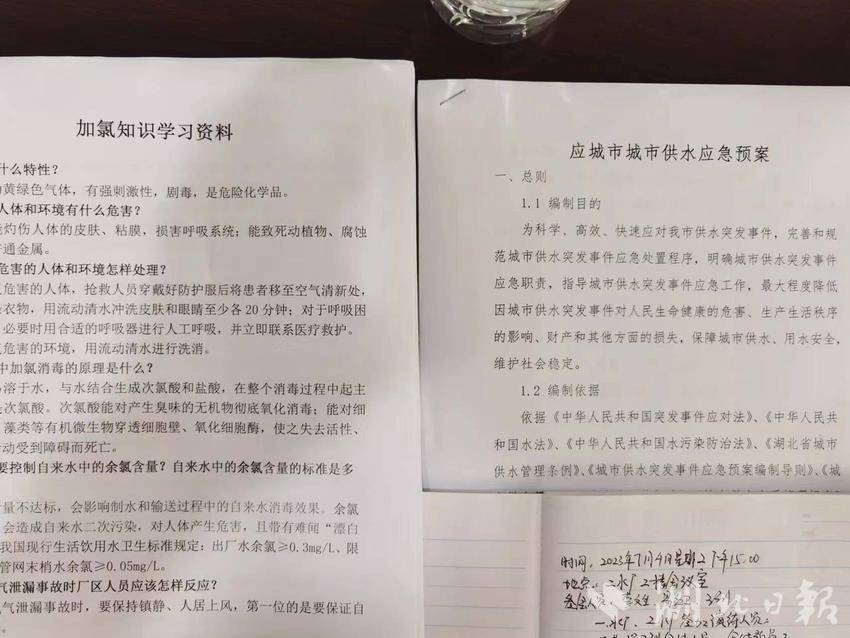 加氯知识学习资料
什么特性？
黄绿色气体，有强刺激性，剧毒，是危险化学品。
人体和环境有什么危害？
灼伤人体的皮肤、粘膜，损害呼吸系统；能致死动植物、腐蚀
通金属。
危害的人体和环境怎样处理？
危害的人体，抢救人员穿戴好防护服后将患者移至空气清新处，
衣物，用流动清水冲洗皮肤和眼睛至少各 20 分钟；对于呼吸困
必要时用合适的呼吸器进行人工呼吸，并立即联系医疗救护。
危害的环境，用流动清水进行洗消。
中加氯消毒的原理是什么？
溶于水，与水结合生成次氯酸和盐酸，在整个消毒过程中起主
次氯酸。次氯酸能对产生臭味的无机物彻底氧化消毒；能对细
藻类等有机微生物穿透细胞壁、氧化细胞酶，使之失去活性、
动受到障碍而死亡。
要控制自来水中的余氯含量？自来水中的余氯含量的标准是多
量不达标，会影响制水和输送过程中的自来水消毒效果。余氯
会造成自来水二次污染，对人体产生危害，且带有难闻“漂白
我国现行生活饮用水卫生标准规定：出厂水余氯≥0.3mg/L、限
管网末梢水余氯≥0.05mg/L。
气泄漏事故时厂区人员应该怎样反应？
气泄漏事故时，要保持镇静、人居上风，第一位的是要保证自
应城市城市供水应急预案
一、总则
1.1 编制目的
为科学、高效、快速应对我市供水突发事件，完善和规
范城市供水突发事件应急处置程序，明确城市供水突发事件
应急职责，指导城市供水突发事件应急工作，最大程度降低
因城市供水突发事件对人民生命健康的危害、生产生活秩序
的影响、财产和其他方面的损失，保障城市供水、用水安全，
维护社会稳定。
1.2 编制依据
依据《中华人民共和国突发事件应对法》、《中华人民共
和国水法》、《中华人民共和国水污染防治法》、《湖北省城市
供水管理条例》、《城市供水突发事件应急预案编制导则》、《城
时间：2023年7月4日星期2 下午15:00
地点：二水厂2楼会议室
湖北日报